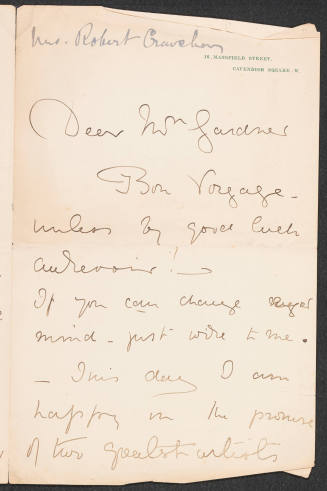 Mrs. Robert Crawshay
16, MANSFIELD STREET,
CAVENDISH SQUARE. W.
Dear Mrs Gardner
Bon Voyage -
unless by good luck
aurevoir! -
If you can change your
mind - just wire to me.
- This day I am
happy in the promise
of two greatest artists